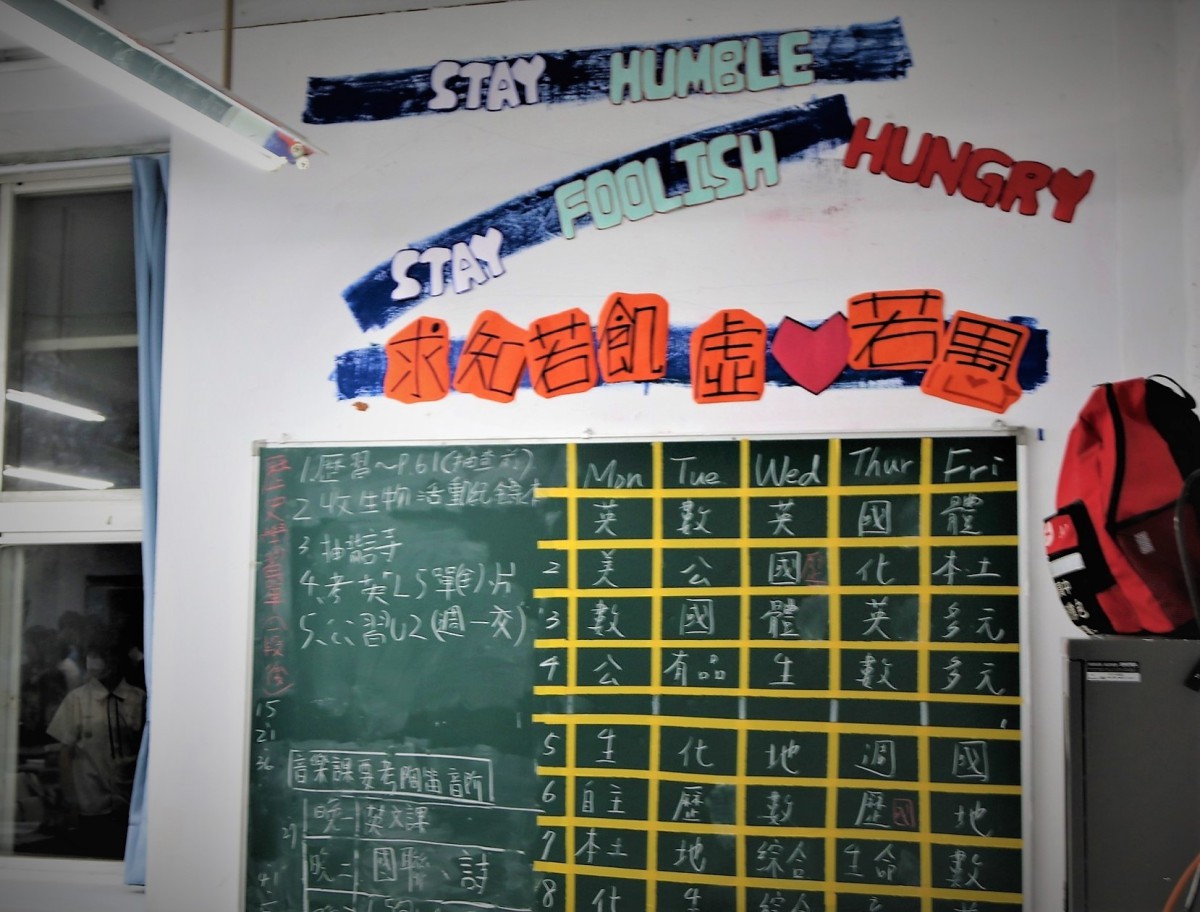 STAY HUMBLE
STAY FOOLISH HUNGRY
求知若飢 虛 若愚
1.歷習~P.61(抽查六)
2 收生物活動紀錄本
3.抽
4.考英L5單 片
5.公習U2(週一交)
15
21
音樂課要考陶笛
晚一 英文課
27
晚二 國聯、詩
41
Mon Tue Wed Thur Fri
英 數 英 國 體
2 美 公 國 歷 化 本土
3 數 國 體 英 多元
4 公 有品 生 數 多元
5 生 化 地 週 國
6 自主 歷 數 歷 國 地
7 本土 地 綜合 生命 數
8 化 生 綜合